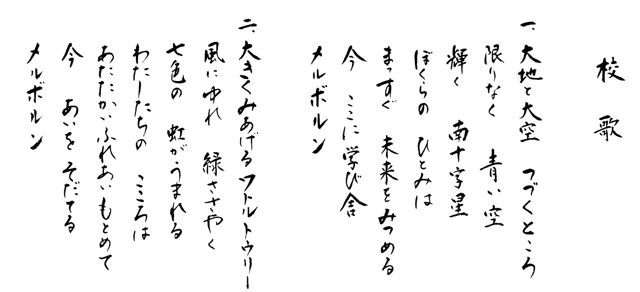 校歌
一、大地と大空 つづくところ
限りなく 青い空
輝く 南十字星
ぼくらの ひとみは
まっすぐ 未来をみつめる
今 ここに学び舎
メルボルン
二、大きくみあげるワトルトゥリー
風にゆれ 緑ささやく
七色の 虹がうまれる
わたしたちの こころは
あたたかいふれあいもとめて
今 あいをそだてる
メルボルン